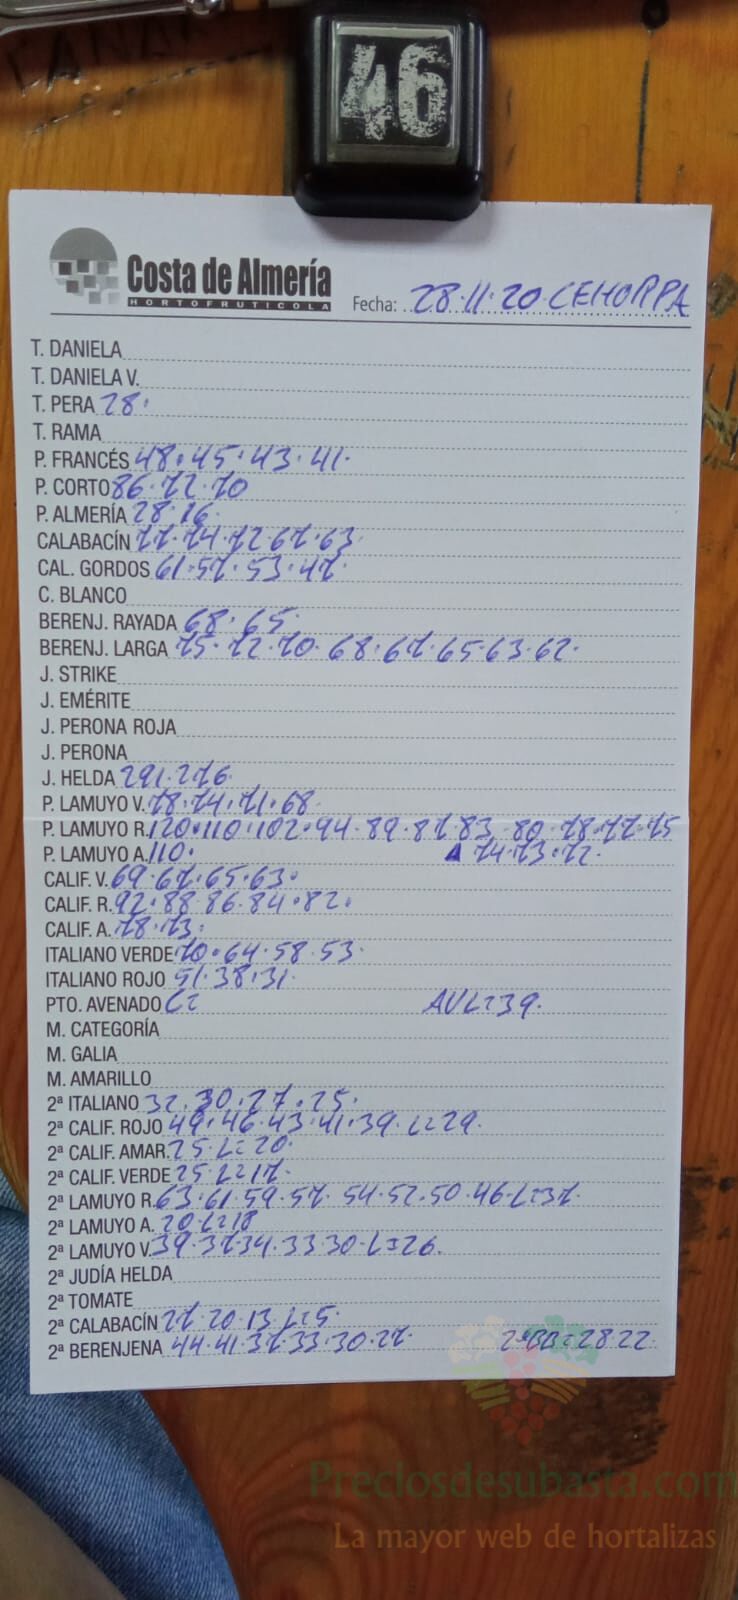 46
Costa de Almería
HORTOFRUTICOLA
Fecha: 28·11·20·CEHORPA
T. DANIELA
T. DANIELA V.
T. PERA 28·
T. RAMA
P. FRANCÉS 48·45·43·41·
P. CORTO 86·72·70
P. ALMERÍA 28·16·
CALABACÍN 77·74·72·67·63·
CAL. GORDOS 61·57·53·47·
C. BLANCO
BERENJ. RAYADA 68·65·
BERENJ. LARGA 75·72·70·68·67·65·63·62·
J. STRIKE
J. EMÉRITE
J. PERONA ROJA
J. PERONA
J. HELDA 291·276·
P. LAMUYO V. 78·74·71·68·
P. LAMUYO R. 120·110·102·94·89·87·83·80·78·77·75
P. LAMUYO A. 110· 74·73·72·
CALIF. V. 69·67·65·63·
CALIF. R. 92·88·86·84·82·
CALIF. A. 78·73·
ITALIANO VERDE 70·64·58·53·
ITALIANO ROJO 51·38·31·
PTO. AVENADO AVL=39·
M. CATEGORÍA
M. GALIA
M. AMARILLO
2ª ITALIANO 32·30·27·25·
2ª CALIF. ROJO 49·46·43·41·39·L=29·
2ª CALIF. AMAR. 25·L=20·
2ª CALIF. VERDE 25·L=17·
2ª LAMUYO R. 63·61·59·57·54·52·50·46·L=37·
2ª LAMUYO A. 20·L=18
2ª LAMUYO V. 39·37·34·33·30·L=26·
2ª JUDÍA HELDA
2ª TOMATE
2ª CALABACÍN 27·20·13·L=5·
2ª BERENJENA 44·41·37·33·30·27· 2ªBB=28·22·
Preciosdesubasta.com
La mayor web de hortalizas